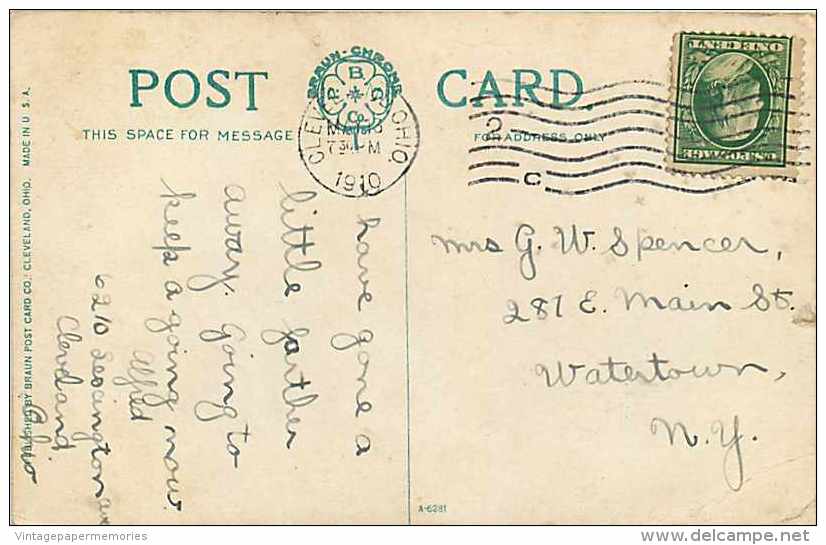 POST CARD
BRAUN-CHROME
B.
P. C.
Co.
THIS SPACE FOR MESSAGE
FOR ADDRESS ONLY
CLEV OHIO.
7 30 PM
1910
2
C
ONE CENT
U.S. POSTAGE
have gone a
little farther
away. Going to
keep a going now.
Alfred
6210 Lexington ave
Cleveland
Ohio
Mrs G. W. Spencer,
281 E. Main St.
Watertown,
N.Y.
PUBLISHED BY BRAUN POST CARD CO., CLEVELAND, OHIO. MADE IN U.S.A.
A-6281
Vintagepapermemories
www.delcampe.net